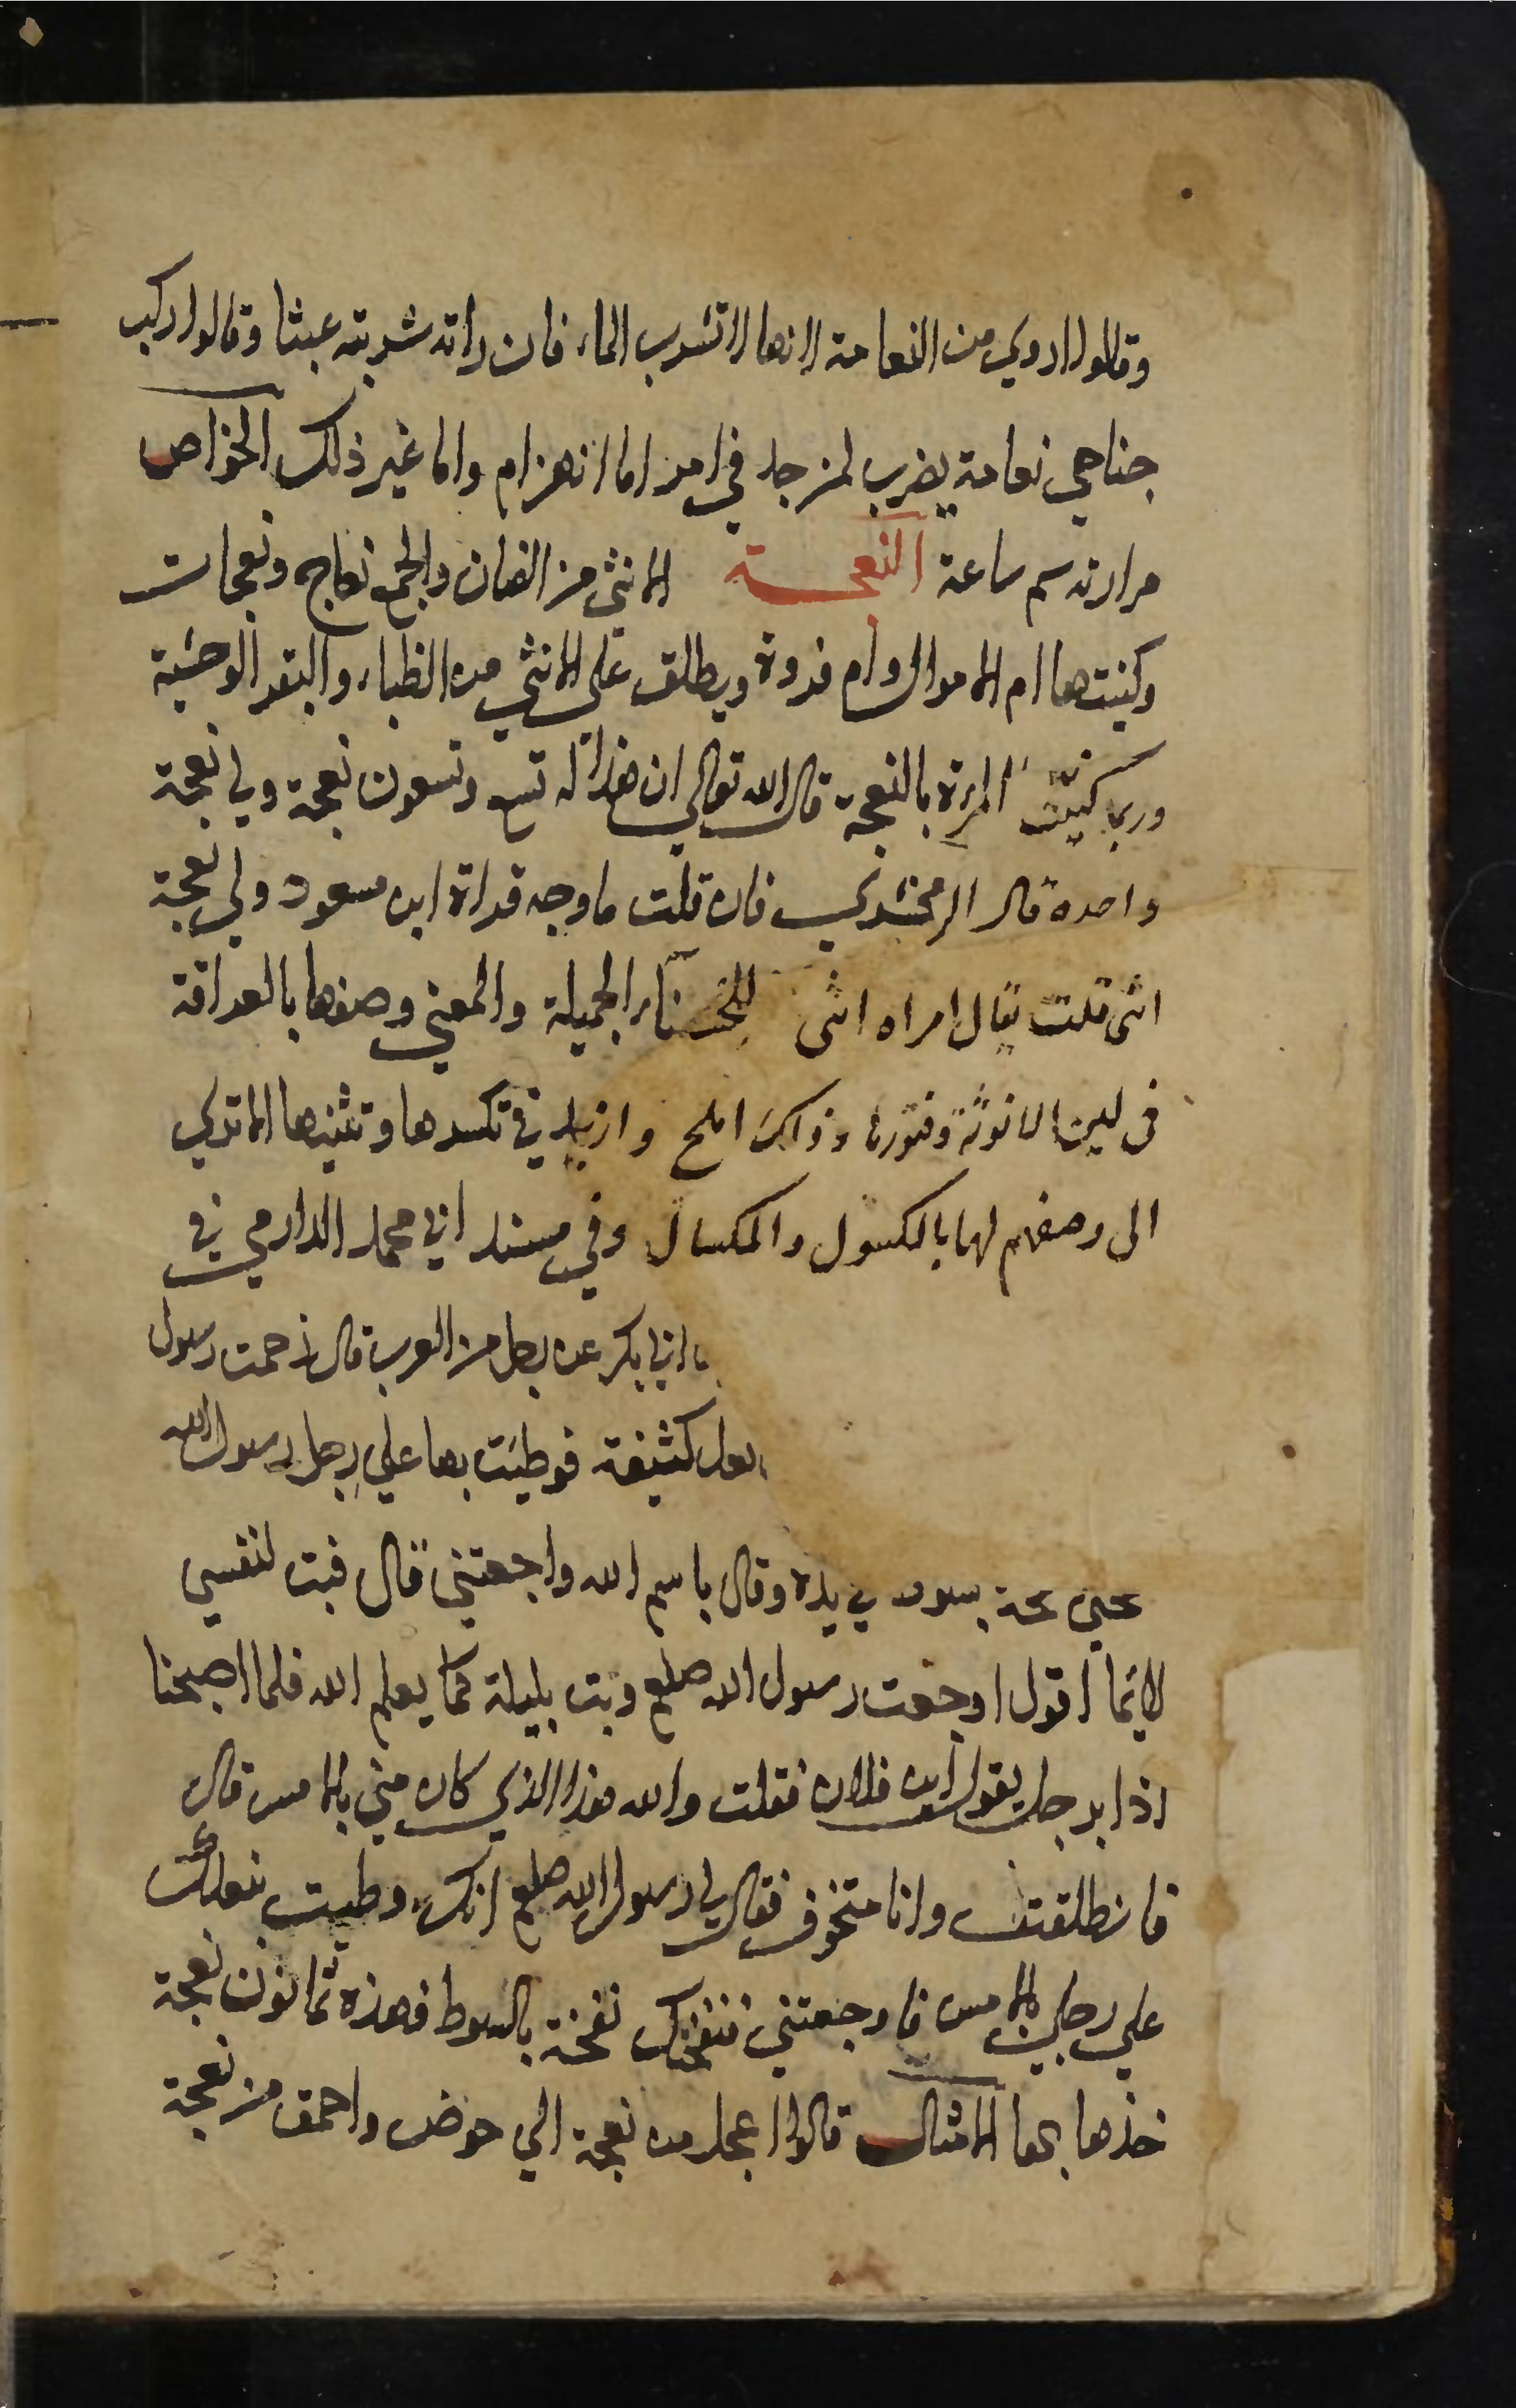 وقالوا اروي من النعامة لانها لا تشرب الماء فان راته شربته عبثا وقالوا ركب
جناحي نعامة يضرب لمن جد في امر اما انهزام واما غير ذلك الخواص
مرارته سم ساعة النعجة الانثى من الضان والجمع نعاج ونعجات
وكنيتها ام الاموال وام فروة ويطلق على الانثي من الظباء والبقر الوحشية
وربما كنيت المراة بالنعجة قال الله تعالى ان هذا له تسع وتسعون نعجة ولي نعجة
واحدة قال الزمخشري فان قلت ما وجه قراة ابن مسعود ولي نعجة
انثى قلت يقال امراه انثى للحسناء الجميلة والمعني وصفها بالعراقة
في لين الانوثة وفتورها وذلك املح وازيد في تكسرها وتثنيها الا تري
الى وصفهم لها بالكسول والمكسال وفي مسند ابي محمد الدارمي في
ابي بكر عن رجل من العرب قال زحمت رسول
نعل كثيفة فوطئت بها علي رجل رسول الله
بسوط في يده وقال باسم الله واجعتني قال فبت لنفسي
لائما اقول اوجعت رسول الله صلعم وبت بليلة كما يعلم الله فلما اصبحنا
اذا برجل يقول اين فلان فقلت والله هذا الذي كان مني بالامس قال
فانطلقت وانا متخوف فقال لي رسول الله صلعم انك وطيت بنعلك
علي رجلي بالامس فاوجعتني فنفحتك نفحة بالسوط فهذه ثمانون نعجة
خذها بها الامثال قالوا اعجل من نعجة الي حوض واحمق من نعجة